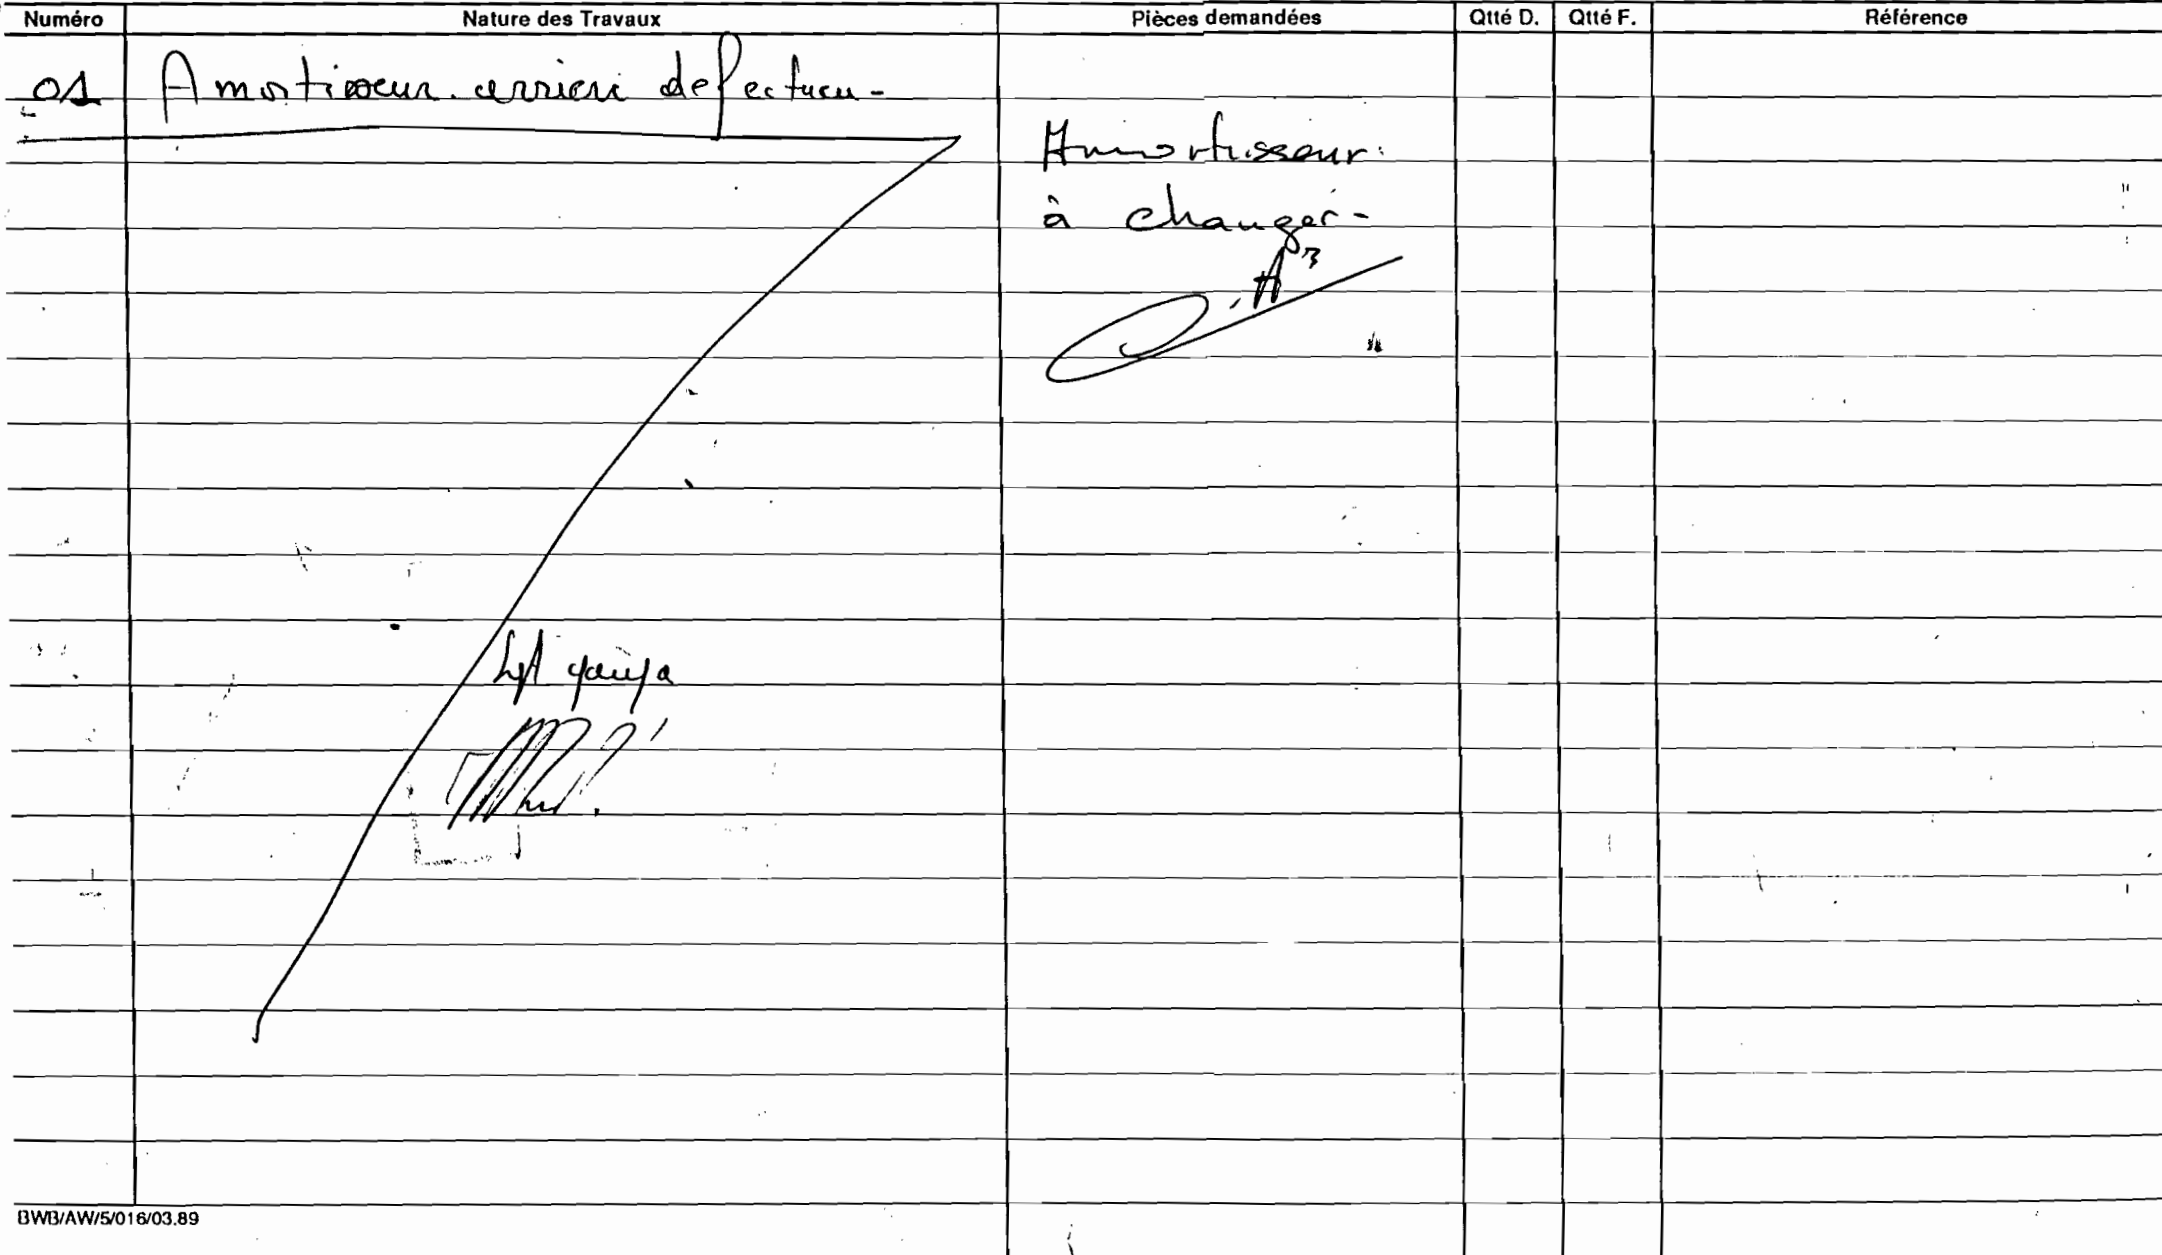 Numéro Nature des Travaux Pièces demandées Qtté D. Qtté F. Référence
01 Amortisseur arrière defectueu-
Ammortisseur
à changer-
BWB/AW/5/016/03.89